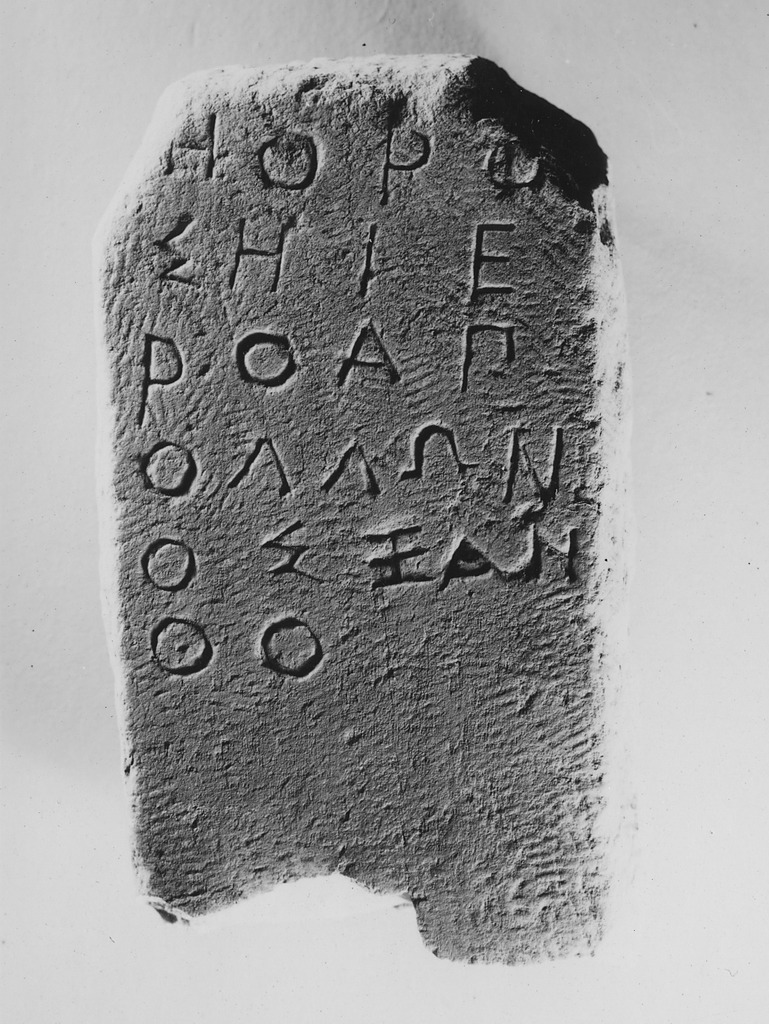 ΗΟΡΟ
ΣΗΙΕ
ΡΟΑΠ
ΟΛΛΩΝ
ΟΣΞΑΝ
ΘΟ